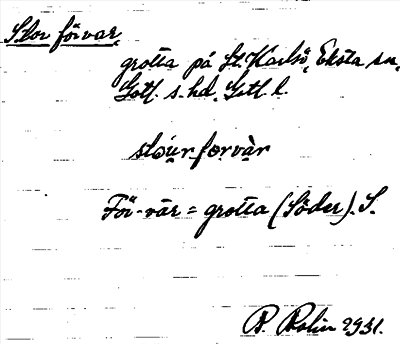 Stor förvar,
grotta på St. Karlsö, Eksta sn,
Gotl. s. hd, Gotl. l.
stóu̯r fǫrvàr
För-vär = grotta (Söder). S.
1931.